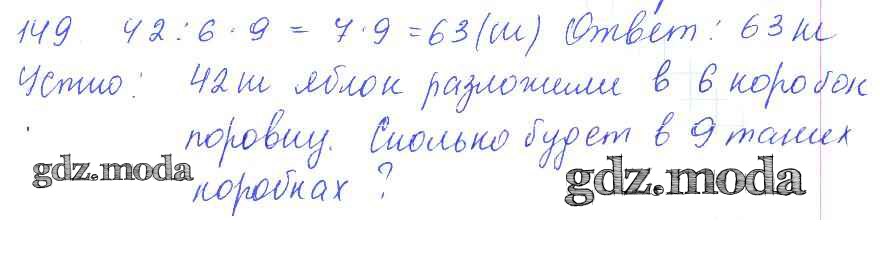 149. 42 : 6 · 9 = 7 · 9 = 63 (ш) Ответ: 63 ш
Устно: 42 ш яблок разложили в 6 коробок
поровну. Сколько будет в 9 таких
gdz.moda
коробках ?
gdz.moda